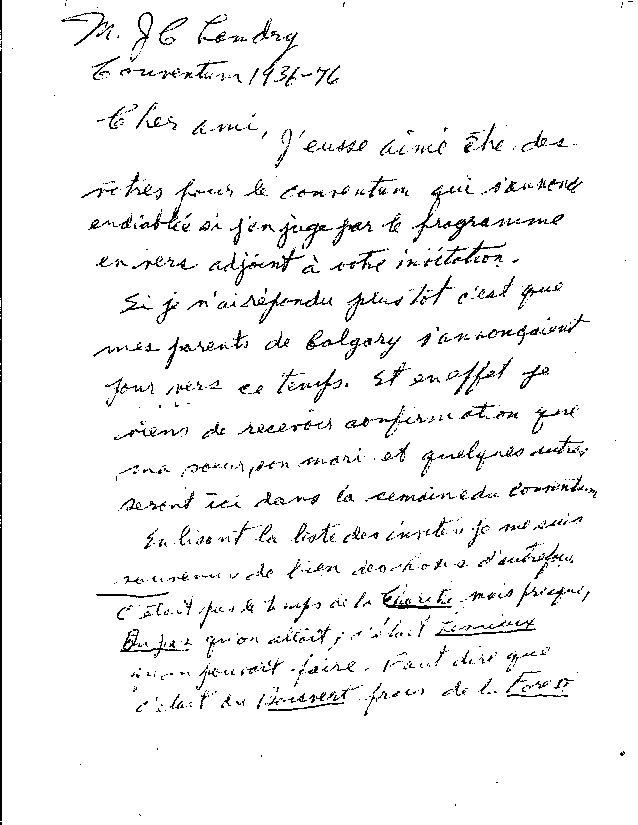 M. J C Landry
Conventum 1936-76
Cher ami,
J'eusse aimé être des
vôtres pour le conventum qui s'annonce
endiablée si j'en juge par le programme
en vers adjoint à votre invitation.
Si je n'ai répondu plus tôt c'est que
mes parents de Calgary s'annonçaient
pour vers ce temps. Et en effet je
viens de recevoir confirmation que
ma soeur, son mari et quelques autres
seront ici dans la semaine du conventum
En lisant la liste des invités je me suis
souvenu de bien des choses d'autrefois
C'était pas le temps de la Charité mais presque,
qu'on allait, c'était Lemieux
qu'on pouvait faire. Faut dire que
c'était du Boisvert frais de la Forest